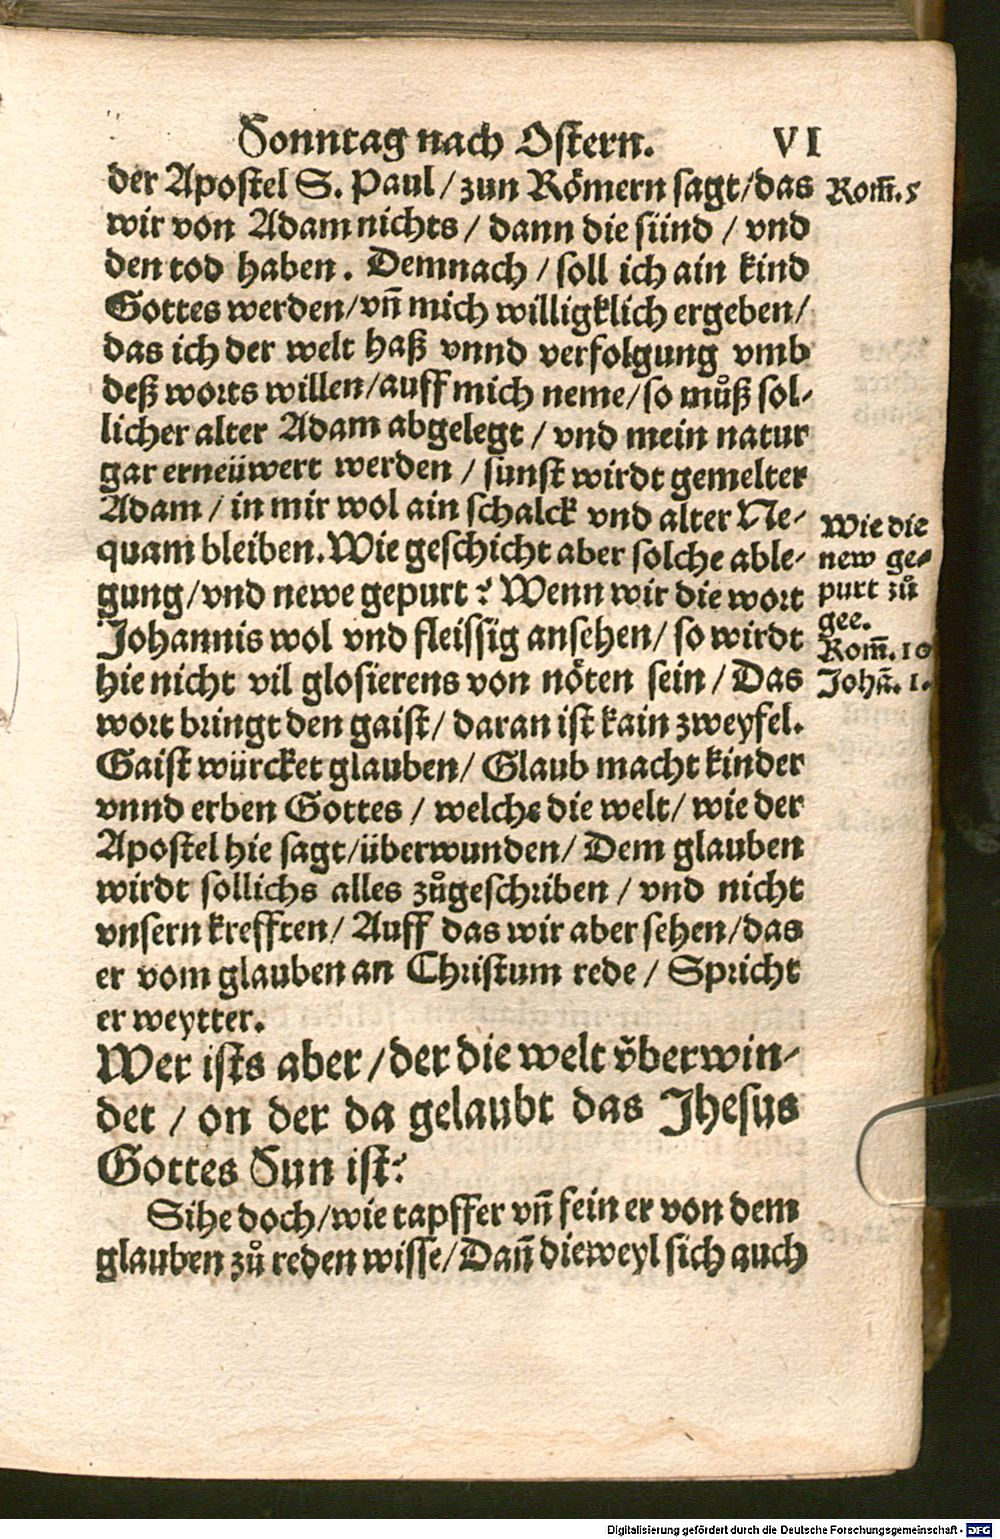 Sonntag nach Ostern. VI
der Apostel S. Paul / zun Römern sagt / das
Rom̃. 5
wir von Adam nichts / dann die sünd / vnd
den tod haben. Demnach / soll ich ain kind
Gottes werden / vn̄ mich willigklich ergeben /
das ich der welt haß vnnd verfolgung vmb
deß worts willen / auff mich neme / so můß sol-
licher alter Adam abgelegt / vnd mein natur
gar erneüwert werden / sunst wirdt gemelter
Adam / in mir wol ain schalck vnd alter Ne-
quam bleiben. Wie geschicht aber solche able-
gung / vnd newe gepurt? Wenn wir die wort
Johannis wol vnd fleissig ansehen / so wirdt
hie nicht vil glosierens von nöten sein / Das
Wie die
new ge-
purt zů
gee.
Rom̃. 10
Johā. 1.
wort bringt den gaist / daran ist kain zweyfel.
Gaist würcket glauben / Glaub macht kinder
vnnd erben Gottes / welche die welt / wie der
Apostel hie sagt / überwunden / Dem glauben
wirdt sollichs alles zůgeschriben / vnd nicht
vnsern krefften / Auff das wir aber sehen / das
er vom glauben an Christum rede / Spricht
er weytter.
Wer ists aber / der die welt v̈berwin-
det / on der da gelaubt das Jhesus
Gottes Sun ist?
Sihe doch / wie tapffer vn̄ fein er von dem
glauben zů reden wisse / Dan̄ dieweyl sich auch
Digitalisierung gefördert durch die Deutsche Forschungsgemeinschaft - DFG